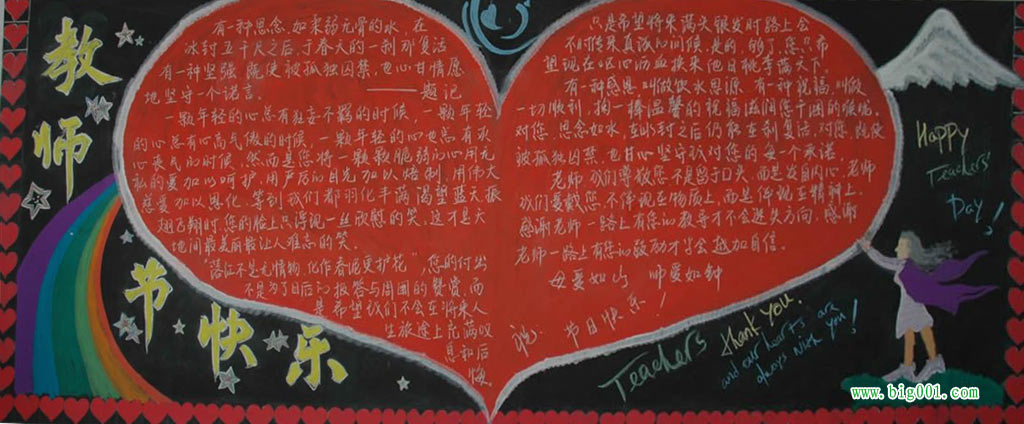 教师节快乐
有一种思念,如柔弱无骨的水,在
冰封五千尺之后,于春天的一刹那复活
有一种坚强,既使被孤独囚禁,也心甘情愿
地坚守一个诺言。——题记
一颗年轻的心总有狂妄不羁的时候,一颗年轻
的心总有心高气傲的时候,一颗年轻的心也总有灰
心丧气的时候。然而是您将一颗颗脆弱的心用无
私的爱加以呵护,用严厉的目光加以焙制,用伟大
慈爱加以恩化,等到我们都羽化丰满渴望蓝天振
翅飞翔时,您的脸上只浮现一丝欣慰的笑,这才是天
地间最美丽最让人难忘的笑。
"落红不是无情物,化作春泥更护花",您的付出
不是为了日后的报答与周围的赞赏,而
是希望我们不会在将来人
生旅途上充满叹
息和后
悔。
只是希望将来满头银发时路上会
不时传来真诚的问候,是的,够了,您只希
望现在呕心沥血换来他日桃李满天下。
有一种感恩,叫做饮水思源,有一种祝福,叫做
一切顺利,掬一捧温馨的祝福滋润您干固的喉咙
对您,思念如水,在冰封之后仍敢在刹复活,对您,既使
被孤独囚禁,也甘心坚守我对您的每一个承诺。
老师,我们尊敬您不是留于口头,而是发自内心,老师
我们爱戴您,不体现在物质上,而是体现在精神上,
感谢老师一路上有您的教导才不会迷失方向,感谢
老师一路上有您的鼓励才会越加自信。
母爱如山 师爱如钟
说: 节日快乐!
Happy
Teachers'
Day!
Teachers
thank you.
and our hearts are
always with you!
www.big001.com